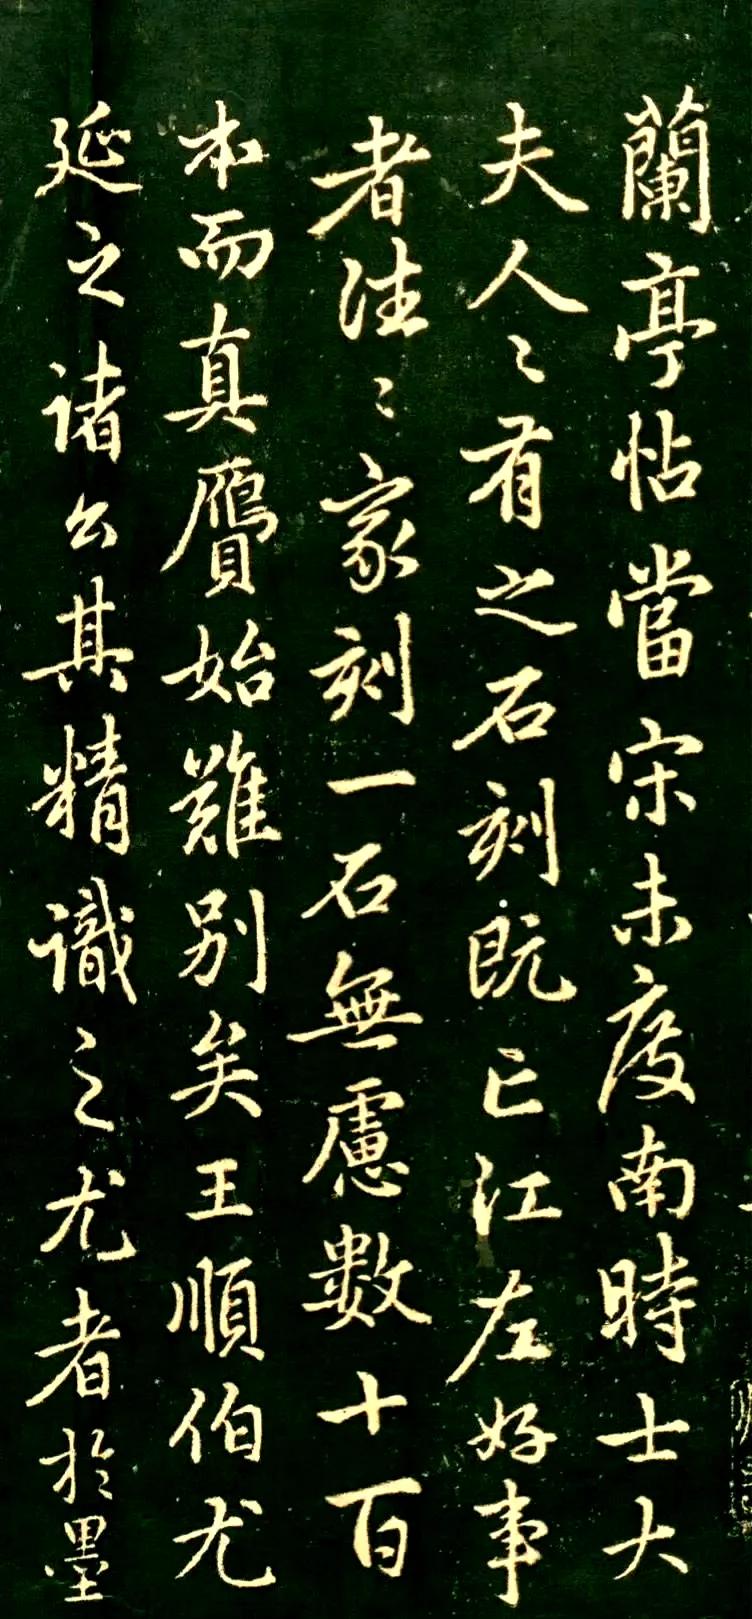 蘭亭帖當宋未度南時士大
夫人〻有之石刻既亡江左好事
者往〻家刻一石無慮數十百
本而真贗始難別矣王順伯尤
延之諸公其精識之尤者於墨